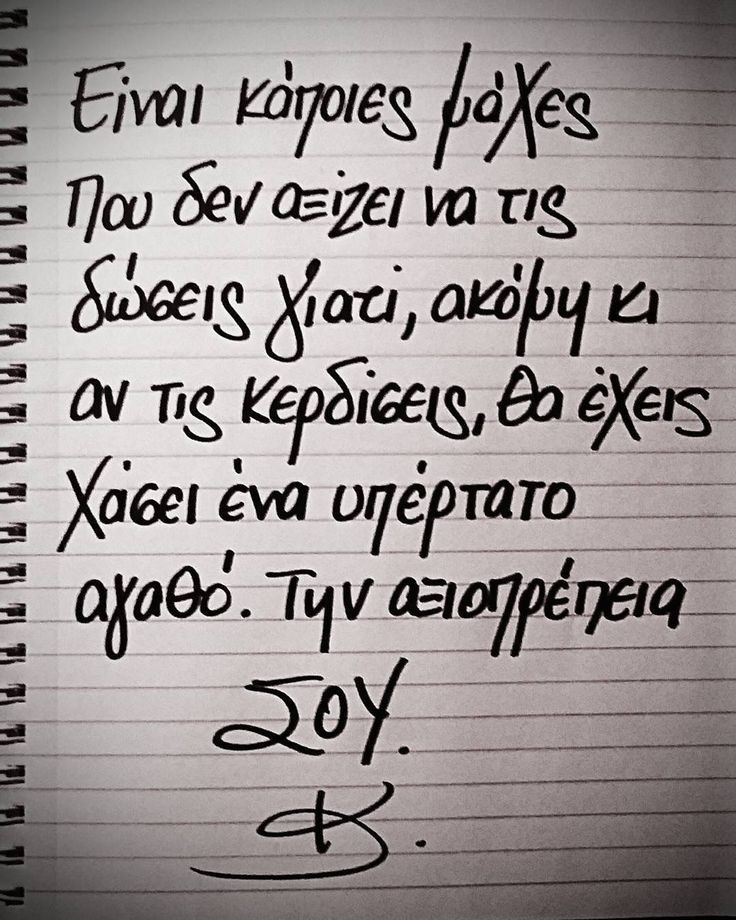 Είναι κάποιες μάχες
που δεν αξίζει να τις
δώσεις γιατί, ακόμη κι
αν τις κερδίσεις, θα έχεις
χάσει ένα υπέρτατο
αγαθό. Την αξιοπρέπεια
ΣΟΥ.
Κ.